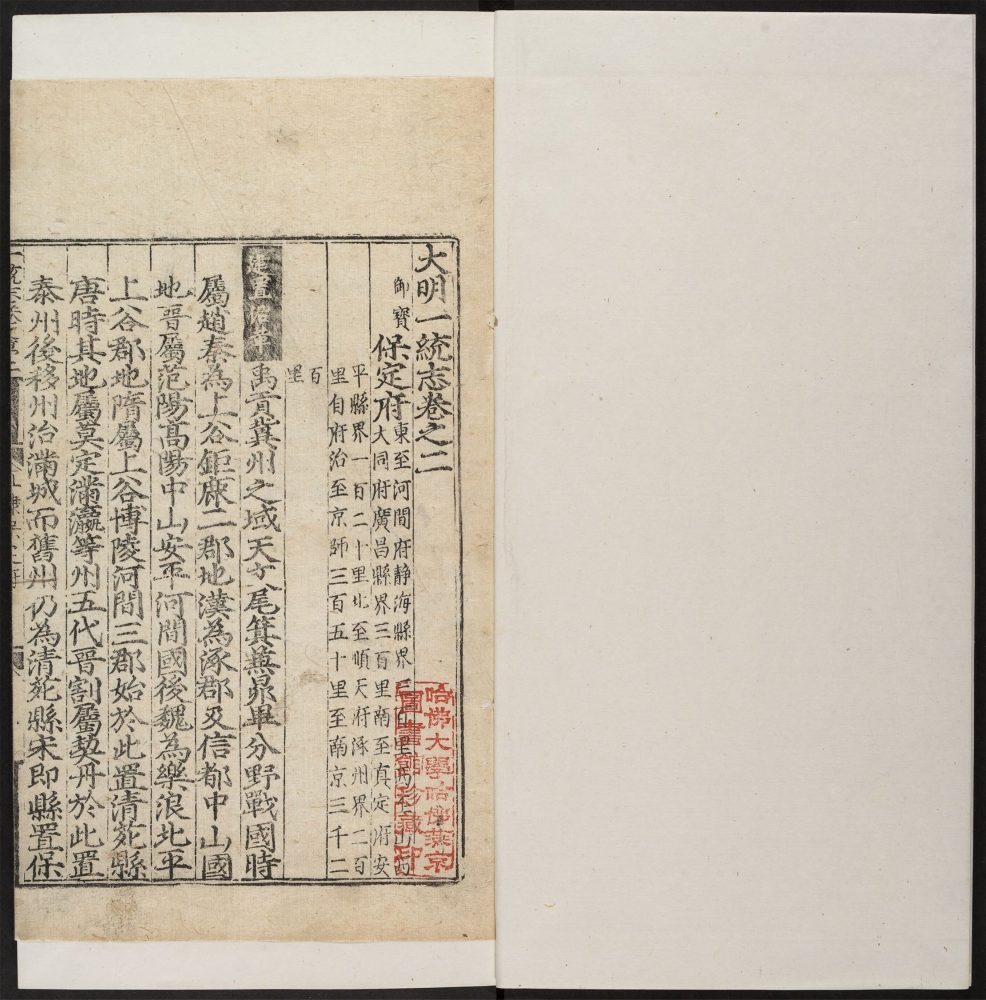 大明一統志卷之二
御寶
保定府
東至河間府靜海縣界三百里西至山西
大同府廣昌縣界三百里南至真定府安
平縣界一百二十里北至順天府涿州界二百
里自府治至京師三百五十里至南京三千二
百
里
建置沿革禹貢冀州之域天文尾箕兼昴畢分野戰國時
屬趙秦為上谷鉅鹿二郡地漢為涿郡及信都中山國
地晉屬范陽高陽中山安平河間國後魏為樂浪北平
上谷郡地隋屬上谷博陵河間三郡始於此置清苑縣
唐時其地屬莫定滿瀛等州五代晉割屬契丹於此置
泰州後移州治滿城而舊州仍為清苑縣宋即縣置保
哈佛大學哈佛燕京
圖書館珍藏印